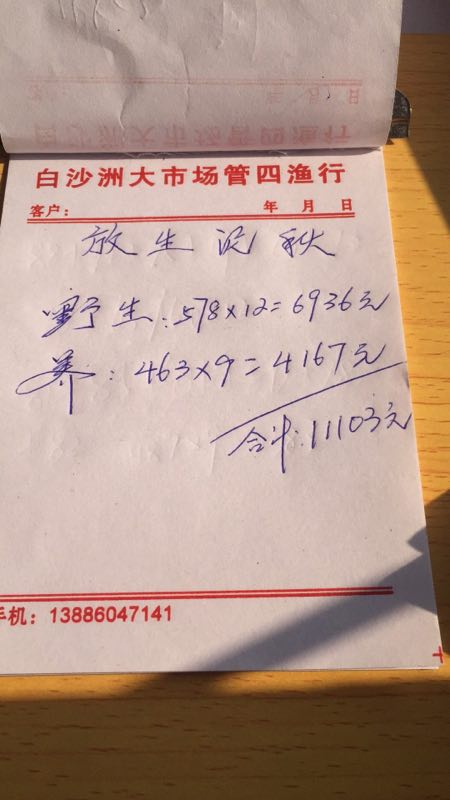 白沙洲大市场管四渔行
客户： 年 月 日
放生泥秋
野生：578×12=6936元
养：463×9=4167元
合计：11103元
手机：13886047141